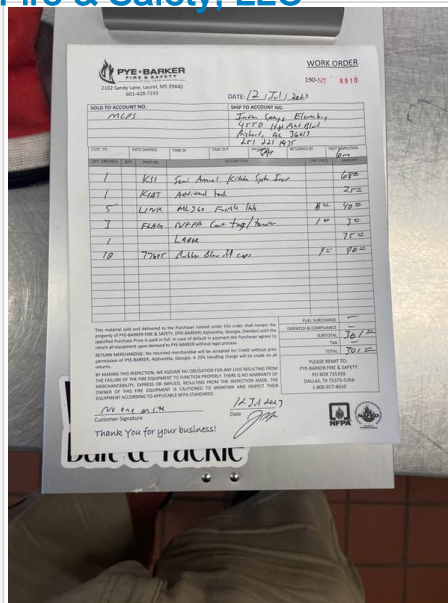 Fire & Safety, LLC
PYE-BARKER
FIRE & SAFETY
2102 Sandy Lane, Laurel, MS 39440
601-428-7233
WORK ORDER
190-No 8910
DATE: 12 Jul 2023
SOLD TO ACCOUNT NO.
SHIP TO ACCOUNT NO.
MCPS
Elementary
4550 High Point Blvd
251 221 1435
CUST. PO
DATE SHIPPED
TIME IN
TIME OUT
RETURNED BY
NEXT INSPECTION
6mo
QTY. ORDERED
PART NO.
DESCRIPTION
UNIT PRICE
AMOUNT
1 KS1 Semi Annual Kitchen Syst Insp 68
1 KSAT Additional tank 25
5 LINK ML360 Fusible link 8 40
3 FLAG NFPA 1 3
1 LABOR 75
10 77695 Rubber Blow off caps 9 90
FUEL SURCHARGE —
DISPATCH & COMPLIANCE —
SUBTOTAL 301
TAX —
TOTAL 301
This material sold and delivered to the Purchaser named under this order shall remain the
property of PYE-BARKER FIRE & SAFETY, (PYE-BARKER) Alpharetta, Georgia, (Vendor) until the
specified Purchase Price is paid in full. In case of default in payment the Purchaser agrees to
return all equipment upon demand to PYE-BARKER without legal process.
RETURN MERCHANDISE: No returned merchandise will be accepted for Credit without prior
permission of PYE-BARKER, Alpharetta, Georgia. A 20% handling charge will be made on all
returns.
BY MAKING THIS INSPECTION, WE ASSUME NO OBLIGATION FOR ANY LOSS RESULTING FROM
THE FAILURE OF THE FIRE EQUIPMENT TO FUNCTION PROPERLY. THERE IS NO WARRANTY OF
MERCHANTABILITY, EXPRESS OR IMPLIED, RESULTING FROM THE INSPECTION MADE. THE
OWNER OF THIS FIRE EQUIPMENT IS CAUTIONED TO MAINTAIN AND INSPECT THEIR
EQUIPMENT ACCORDING TO APPLICABLE NFPA STANDARDS.
PLEASE REMIT TO:
PYE-BARKER FIRE & SAFETY
PO BOX 735358
DALLAS, TX 75373-5358
1-800-927-8610
No one on site
12 Jul 2023
Customer Signature
Date
Thank You for your business!
NFPA